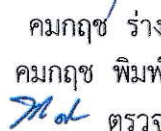 คมกฤช ร่าง
คมกฤช พิมพ์
ตรวจ